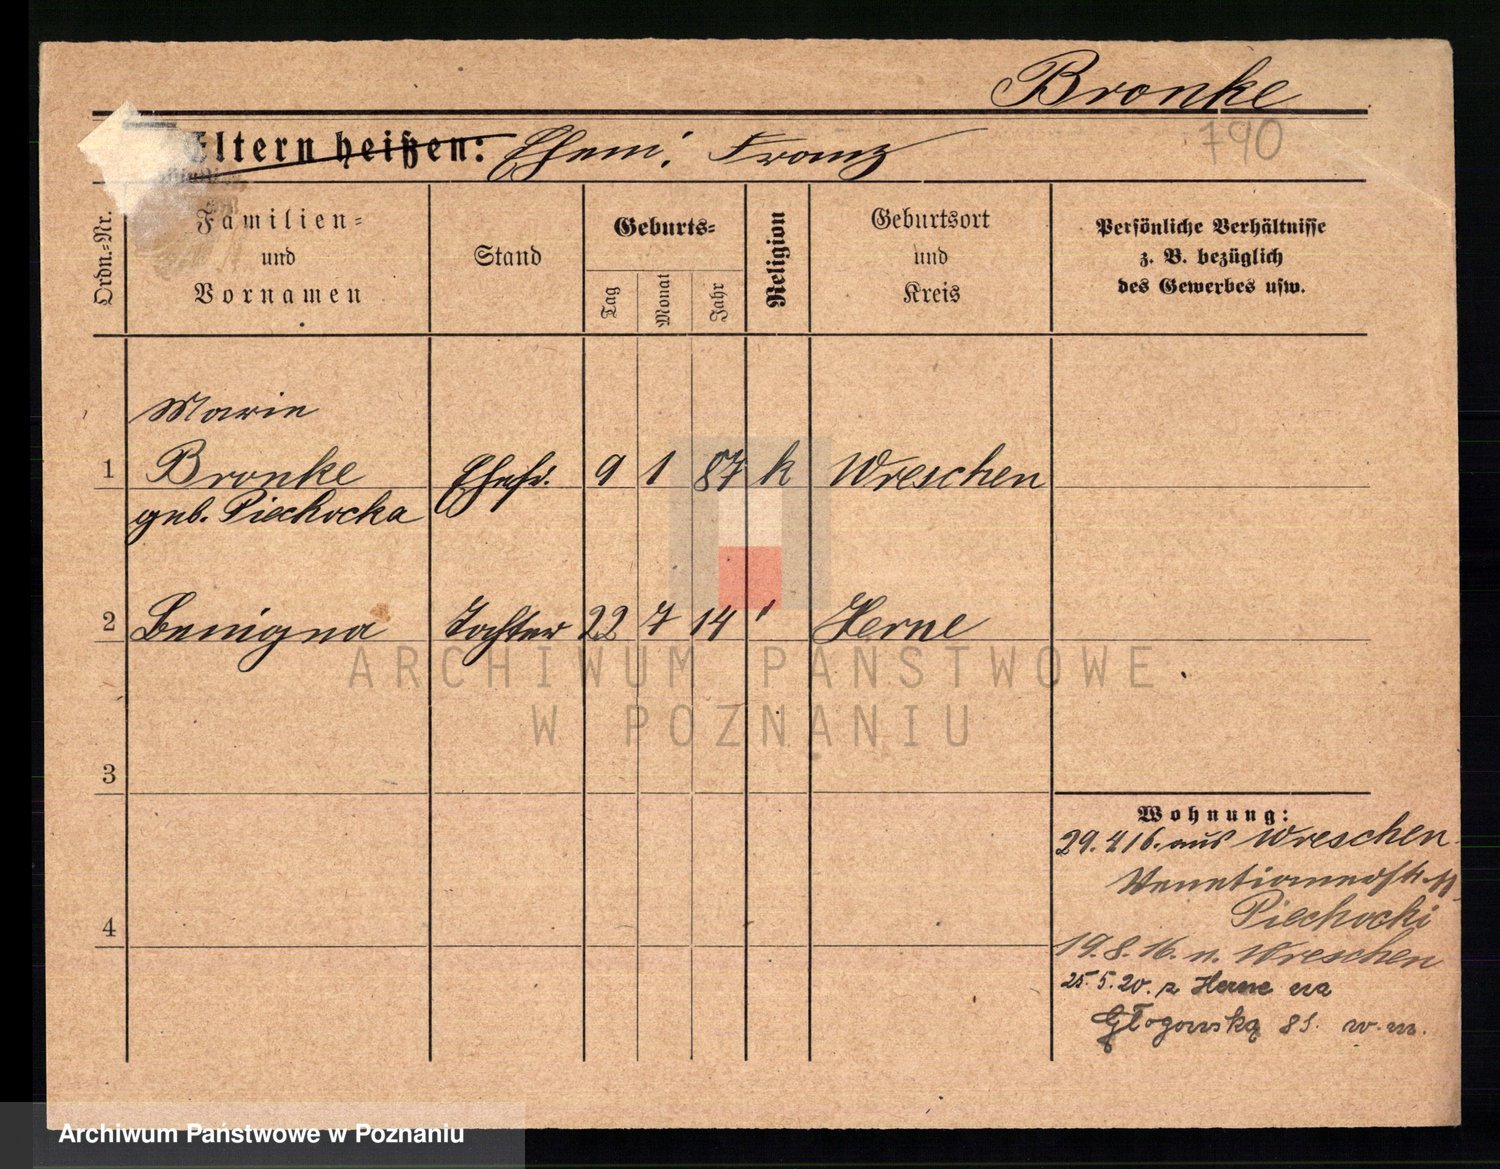 Bronke
790
Eltern heißen: Ehem. Franz
Ordn.-Nr.
Familien-
und
Vornamen
Stand
Geburts-
Tag
Monat
Jahr
Religion
Geburtsort
und
Kreis
Persönliche Verhältnisse
z. B. bezüglich
des Gewerbes usw.
Marie
1 Bronke Ehefr. 9 1 87 k Wreschen
geb. Piechocka
2 Benigna Tochter 22 7 14 " Herne
ARCHIWUM PAŃSTWOWE
W POZNANIU
3
Wohnung:
29.4 16. aus Wreschen
Venetianerstr.
Piechocki
4
19.8.16. n. Wreschen
25.5.20. z Herne na
Głogowską 81. w.m.
Archiwum Państwowe w Poznaniu